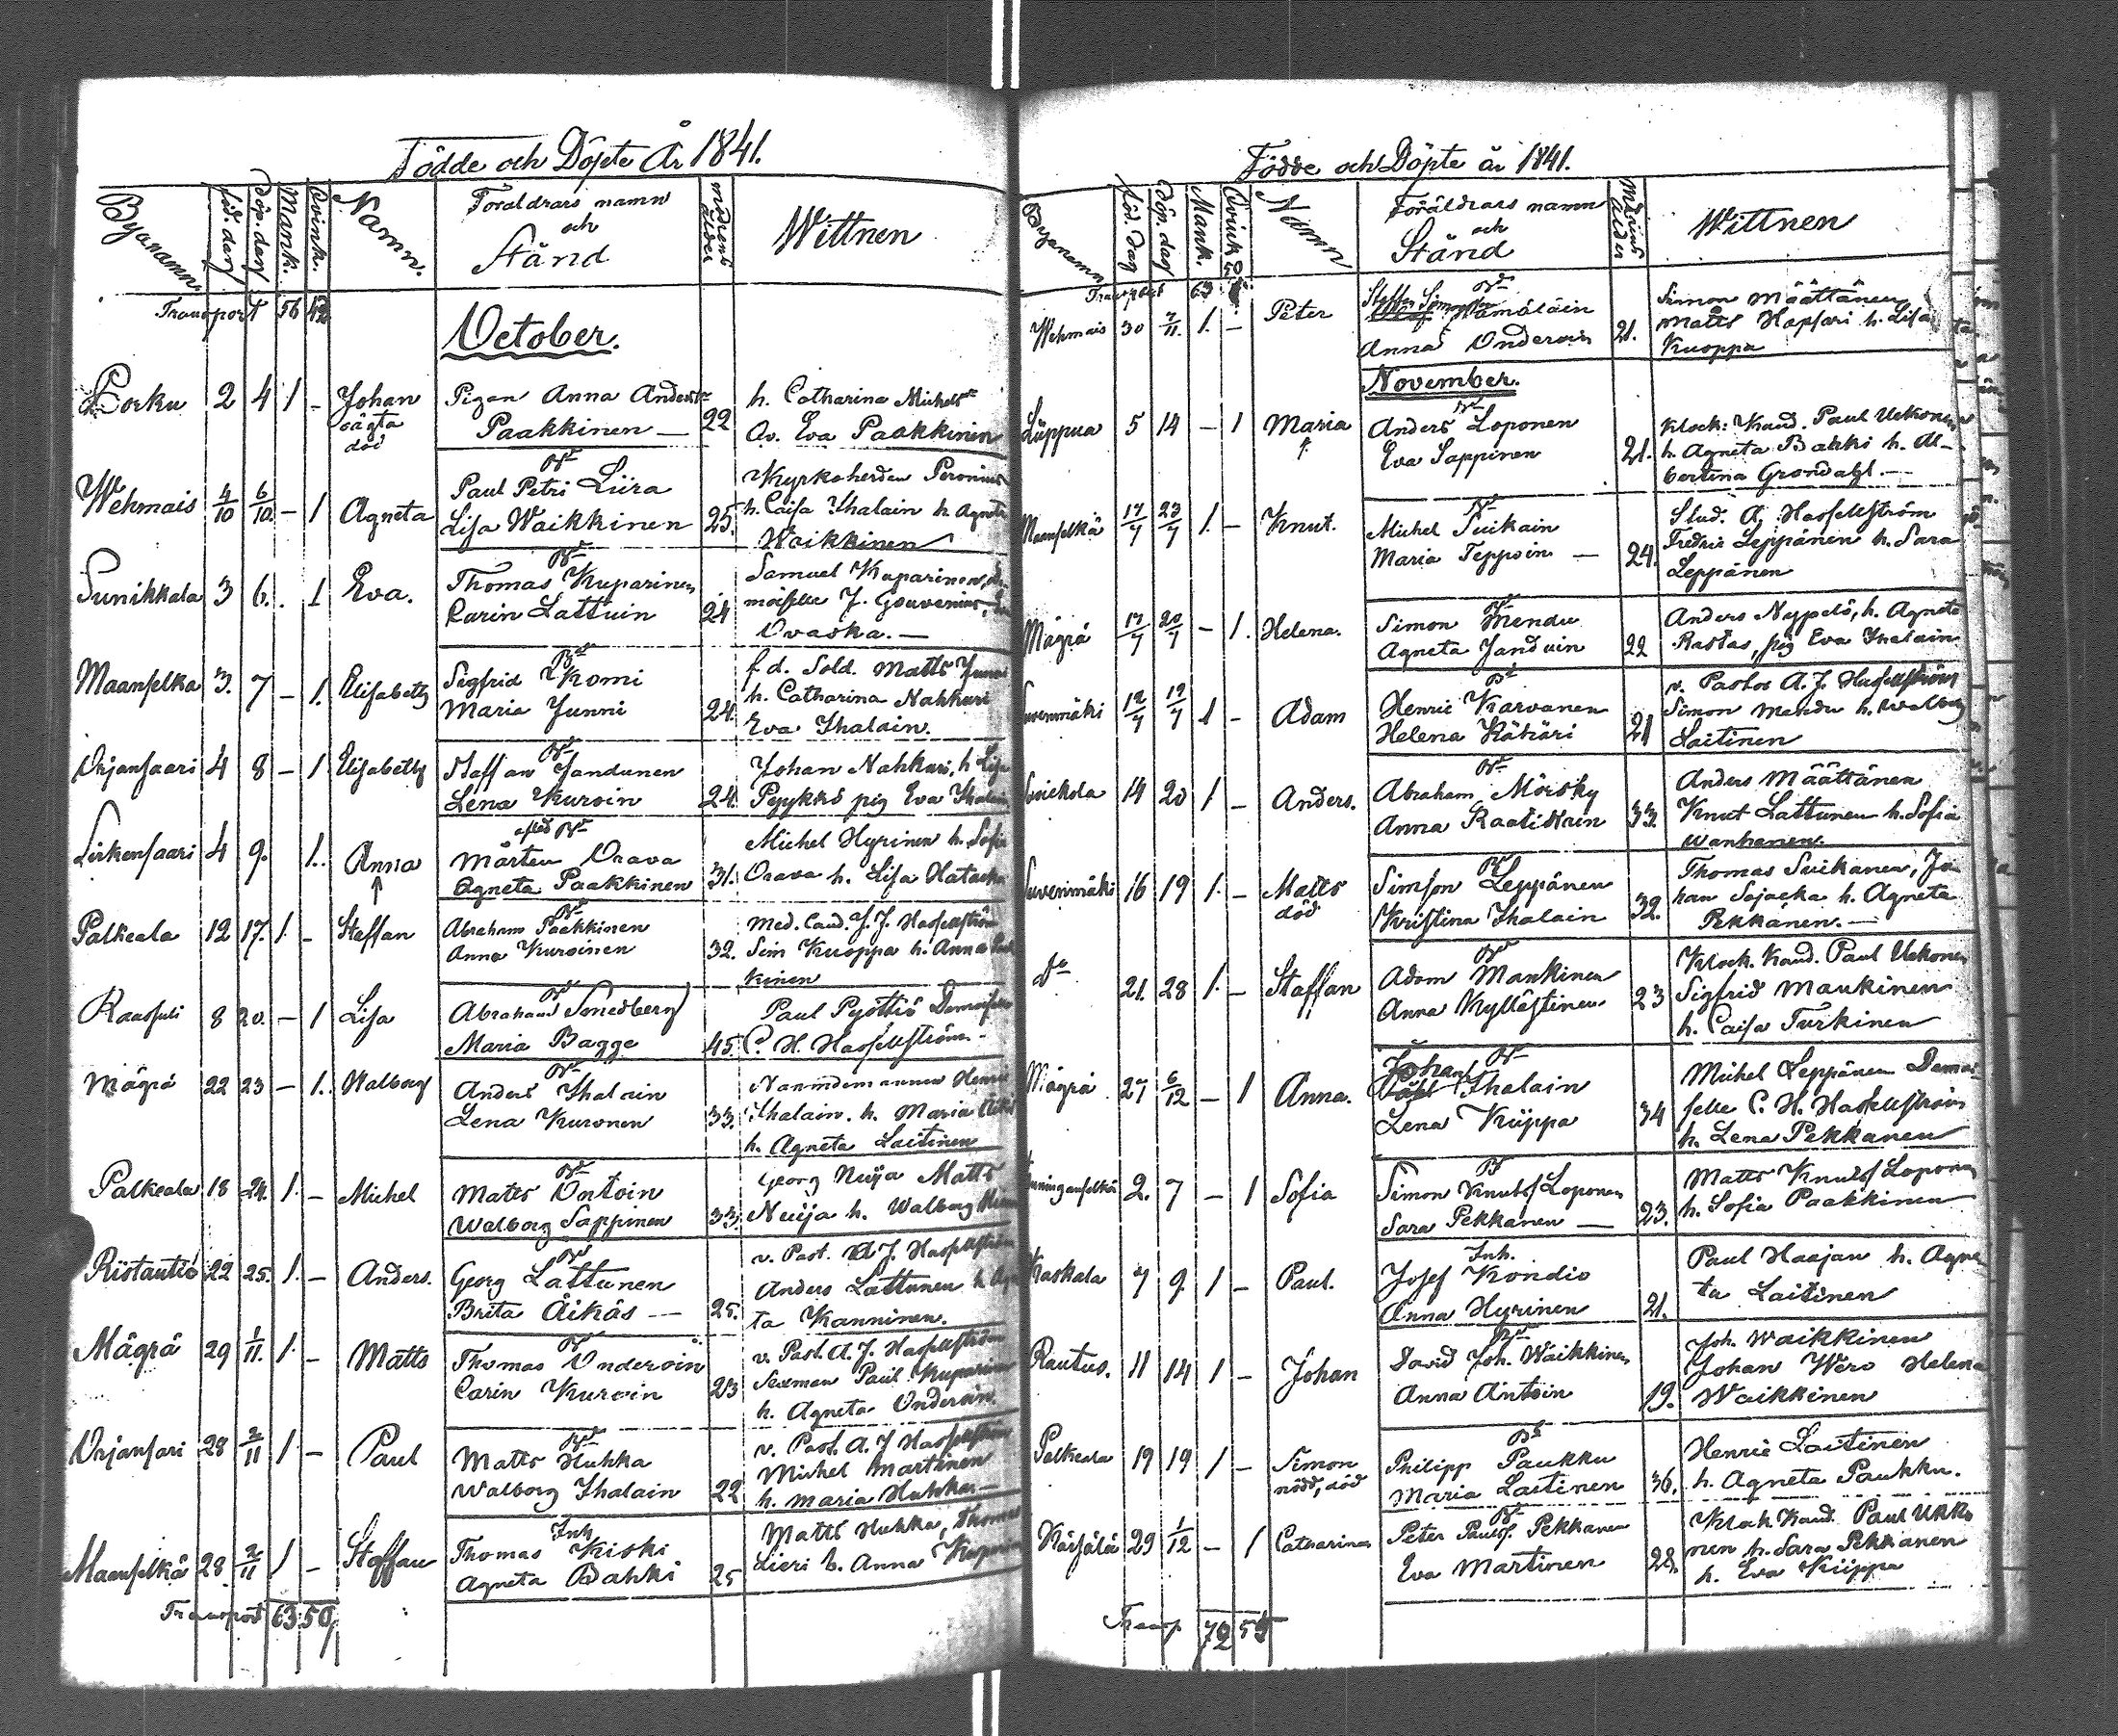 Födde och Döpte År 1841.
Byanamn. föd. dag Döp. dag Mank. Qvink. Namn. Föräldrars namn och Stånd modrens ålder Wittnen
Transport 56 42
October.
Porku 2 4 1 - Johan oägta död Pigan Anna Andersdr Paakkinen — 22 h. Catharina Michelsdr
Av. Eva Paakkinen
Wehmais 4/10 6/10 - 1 Agneta Bd Paul Petri Liira
Lisa Waikkinen 25. Kyrkoherden Peronius
h. Caisa Ihalain h. Agneta
Waikkinen
Sunikkala 3 6. 1 Eva. Bd Thomas Kuparinen
Carin Lattuin 24 Samuel Kuparinen, De
moiselle J. Gouvenius,
Oraska. —
Maanselka 3. 7 - 1. Elisabeth Bd Sigfrid Komi
Maria Junni 24. f d. Sold. Matts Junni
h. Catharina Nahkuri
Eva Ihalain.
Orjansaari 4 8 - 1 Elisabeth Bd Staffan Jandunen
Lena Kuroin 24. Johan Nahkuri, h Lisa
Pyykkö pig Eva Ihalain
Lirkensaari 4 9. 1. Anna afled Bd
Mårten Orava
Agneta Paakkinen 31. Michel Hyrinen h. Sofia
Orava h. Lisa Hatakka
Palkeala 12 17. 1. - Staffan Bd Abraham Paakkinen
Anna Kuroinen 32. Med. Cand. J. J. Hasselström
Sim Kuoppa h. Anna Paak
kinen
Raasuli 8 20. - 1 Lisa Bd Abraham Smedberg
Maria Bagge 45. Paul Pyöttiö Demoiselle
C. H. Hasselström. -
Mägrä 22 23 - 1. Walborg Bd Anders Ihalain
Lena Kuronen 33. Nämndemannen Henric
Ihalain. h. Maria
h. Agneta Laitinen
Palkeala 18 24. 1. - Michel Bd Matts Ontoin
Walborg Sappinen 33. Georg Neüja Matts
Neüja h. Walborg
Riistautio 22 25. 1. - Anders. Bd Georg Lattunen
Brita Äikäs — 25. v. Past. A J. Hasselström
Anders Lattunen h Agne
ta Kanninen.
Mägrä 29 1/11. 1. - Matts Bd Thomas Onderoin
Carin Kuroin 23 v. Past. A. J. Hasselström
Sexman Paul Kuparinen
h. Agneta Onderoin.
Orjansari 28 2/11 1 - Paul Bd Matts Huhka
Walborg Ihalain 22 v. Past. A. J Hasselström
Michel Martinen
h. Maria Huhka —
Maanselkä 28 2/11 1 - Staffan Inh
Thomas Kiiski
Agneta Bahki 25 Matts Huhka, Thomas
Lieri h. Anna Kuparin
Transport 63 50
Födde och Döpte år 1841.
Byanamn föd. dag Döp. dag Mank. Qvink Namn Föräldrars namn och Stånd Modrens Ålder Wittnen
Transport 63
Wehmais 30 7/11. 1. - Peter Bd Hämäläin
Anna Onderoin 21. Simon Määttänen
Matts Hapsari h. Lisa
Kuoppa
November.
Lüppua 5 14 - 1 Maria Bd Anders Loponen
Eva Sappinen 21. Klock: Kand. Paul Uckonen
h. Agneta Bahki h. Al-
bertina Grondahl. —
Maanselkä 17/7 23/7 1. - Knut. Bd Michel Suikain
Maria Teppoin — 24. Stud. A. Hasselström
Fredric Leppänen h. Sara
Leppänen
Mägrä 17/7 20/7 - 1. Helena. Bd Simon Mendu
Agneta Janduin 22 Anders Nypelö, h. Agneta
Rastas, pig Eva Ihalain
Suvenmäki 12/7 19/7 1 - Adam Bd Henric Karvanen
Helena Kähäri 21 v. Pastor A. J. Hasselström
Simon Mendu h. Walborg
Laitinen
14 20 1 - Anders. Bd Abraham Mörsky
Anna Raatikain 33. Anders Määttänen
Knut Lattunen h. Sofia
Wanhanen.
Suvenmäki 16 19 1. - Matts död Bd Simson Leppänen
Kristina Ihalain 32. Thomas Suikanen, Jo-
han Sojacka h. Agneta
Pekkänen. —
do 21. 28 1. - Staffan Bd Adam Mankinen
Anna Kyllästinen 23 Klock. Kand. Paul Uckonen
Sigfrid Maukinen
h. Caisa Turkinen
Mägrä 27 6/12 - 1 Anna. Johan Bd Ihalain
Lena Kiippa 34 Michel Leppänen Demoi-
selle C. H. Hasselström
h. Lena Pekkanen
2. 7 - 1 Sofia Bd Simon Knutss Loponen
Sara Pekkanen — 23. Matts Knutss Loponen
h. Sofia Paakkinen
Kaskala 7 9 1 - Paul. Inh.
Josef Kondio
Anna Hyrinen 21. Paul Haajan h. Agne
ta Laitinen
Rautus. 11 14 1 - Johan Bd David Joh. Waikkinen
Anna Antoin 19. Joh. Waikkinen
Johan Wero Helena
Waikkinen
Palkeala 19 19 1 - Simon nödd, död Bd Philipp Paukku
Maria Laitinen 36. Henric Laitinen
h. Agneta Paukku.
Kärjälä 29 1/12 - 1 Catharina Bd Peter Paulss. Pekkanen
Eva Martinen 22. Klock Kand. Paul Ukko
nen h. Sara Pekkanen
h. Eva Kiippa
Transp 72 55